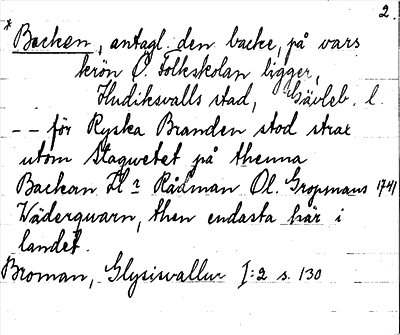 2.
* Backen, antagl. den backe, på vars
krön Ö. Folkskolan ligger,
Hudiksvalls stad, Gävleb. l.
-- för Ryska Branden stod strax
utom Stagwetet på thenna
Backan H:r Rådman Ol. Gropmans 1741
Wäderquarn, then endasta här i
landet.
Broman, Glysisvallur I:2 s. 130